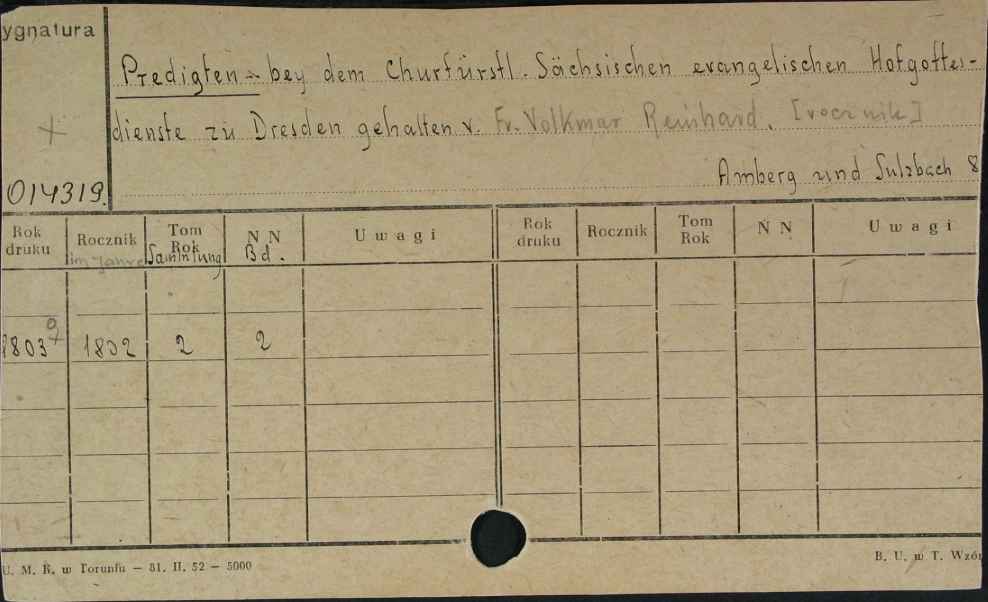 ygnatura
Predigten - bey dem Churfürstl. Sächsischen evangelischen Hofgottes-
+ dienste zu Dresden gehalten v. Fr. Volkmar Reinhard. [rocznik]
014319. Amberg und Sulzbach 8
Rok druku Rocznik Tom Rok N N Uwagi Rok druku Rocznik Tom Rok N N Uwagi
im Jahre Sammlung Bd.
1803 1802 2 2
U. M. K. w Toruniu — 31. II. 52 — 5000 B. U. w T. Wzór